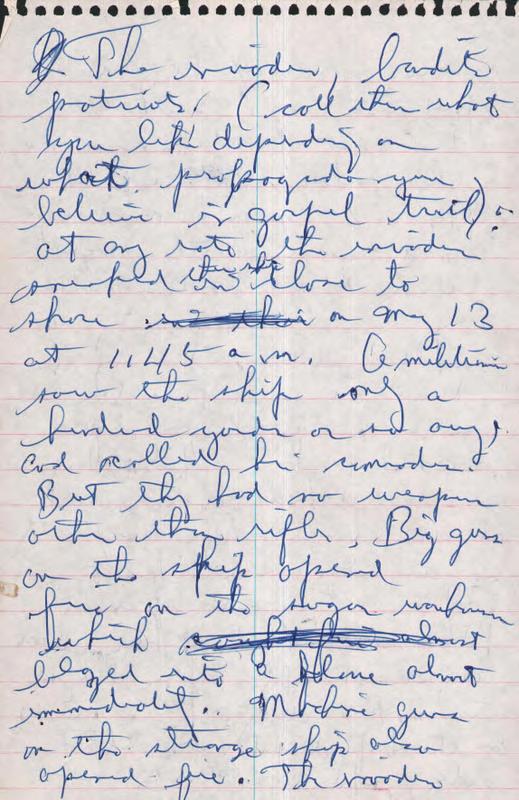 The invaders, bandits
patriots, (call them what
you like depending on
what propaganda you
believe is gospel truth) -
at any rate the invaders
creeped their ship close to
shore on May 13
at 11:45 a.m. A militiaman
saw the ship only a
hundred yards or so away,
and called his comrades.
But they had no weapons
other than rifles. Big guns
on the ship opened
fire on the sugar warehouse
which almost
blazed into a flame almost
immediately. Machine guns
on the strange ship also
opened fire. The invaders